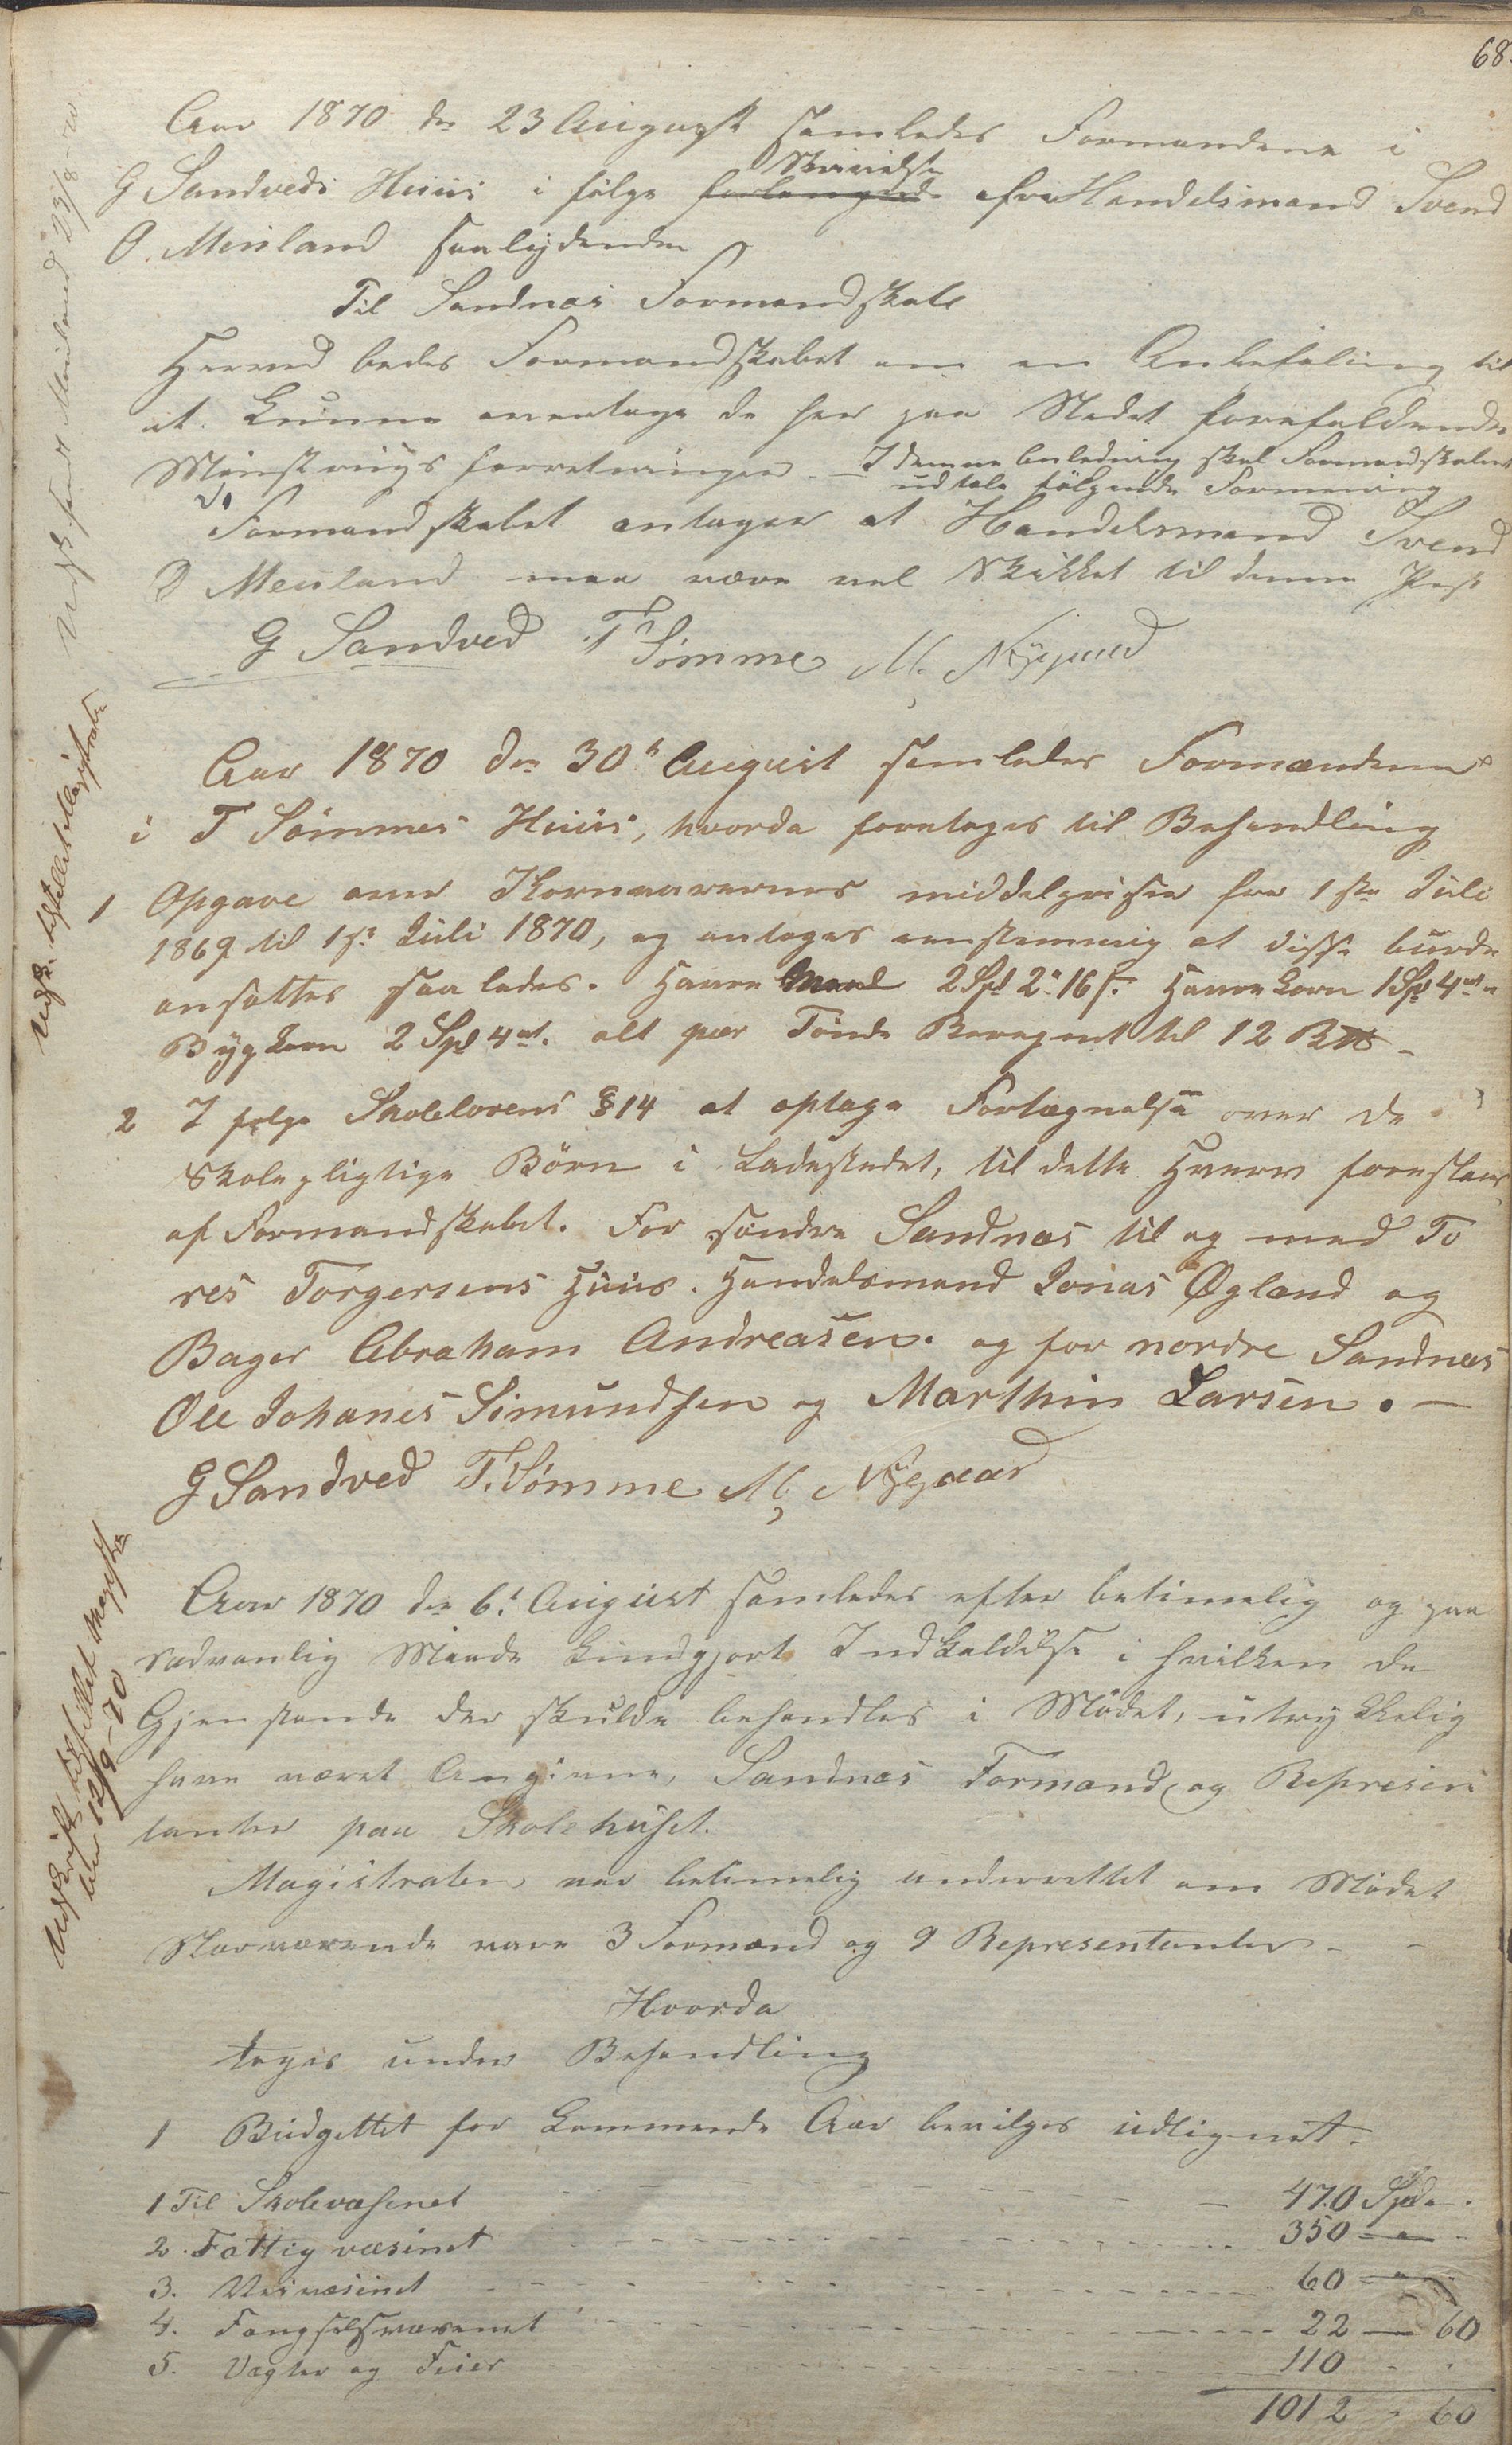 68.
Aar 1870 den 23 August samledes Formændene i
G Sandveds Huus i følge forlangende Skrivelse fra Handelsmand Svend
O. Meiland saalydende
Til Sandnæs Formandskab
Herved bedes Formandskabet om en Anbefaling til
at kunne overtage de her paa Stedet forefaldende
Mønstringsforretninger. - I denne Anledning skal Formandskabet
udtale følgende Formening
Formandskabet antager at Handelsmand Svend
O Meiland maa være vel skikket til denne Post
G Sandved T Sømme M. Nygaard
Udsk. sendt Meiland 23/8-70
Aar 1870 den 30t August samledes Formændene
i T Sømmes Huus, hvorda foretoges til Behandling
1 Opgave over Kornvarernes middelpriser fra 1ste Juli
1869 til 1st Juli 1870, og antages eenstemmig at disse burde
ansættes saaledes. Havre 2 Spd 2 16 s. Havrekorn 1 Spd 4 ort
Bygkorn 2 Spd 4 ort. alt per Tønde Beregnet til 12 B
2 I følge Skolelovens § 14 at optage Fortægnelse over de
Skolepligtige Børn i Ladestedet, til dette Hverv foreslaaes
af Formandskabet. For søndre Sandnæs til og med To
res Torgersens Huus. Handelsmand Jonas Øgland og
Bager Abraham Andreasen. og for nordre Sandnæs
Ole Johanes Simundsen og Marthin Larsen. -
G Sandved T. Sømme M. Nygaard
Udsk. tilstillet Magistraten
Aar 1870 den 6t August samledes efter betimelig og paa
sædvanlig Maade kundgjort Indkaldelse i hvilken de
Gjenstande der skulde behandles i Mødet, utrykkelig
have været Angivne, Sandnæs Formænd og Represen
tanter paa Skolehuset.
Magistraten var betimelig underrettet om Mødet
Nærværende vare 3 Formænd og 9 Representanter -
Hvorda
toges under Behandling
Udskrift tilstillet Magistr
den 12/9-70
1 Budgettet for kommende Aar bevilges udlignet.
1 Til Skolevæsenet 470 Spd.
2. Fattigvæsinet 350 - " -
3. Veivæsinet 60 - " -
4. Fængselsvæsenet 22 - 60
5. Vægter og Feier 110 - -
1012 - 60